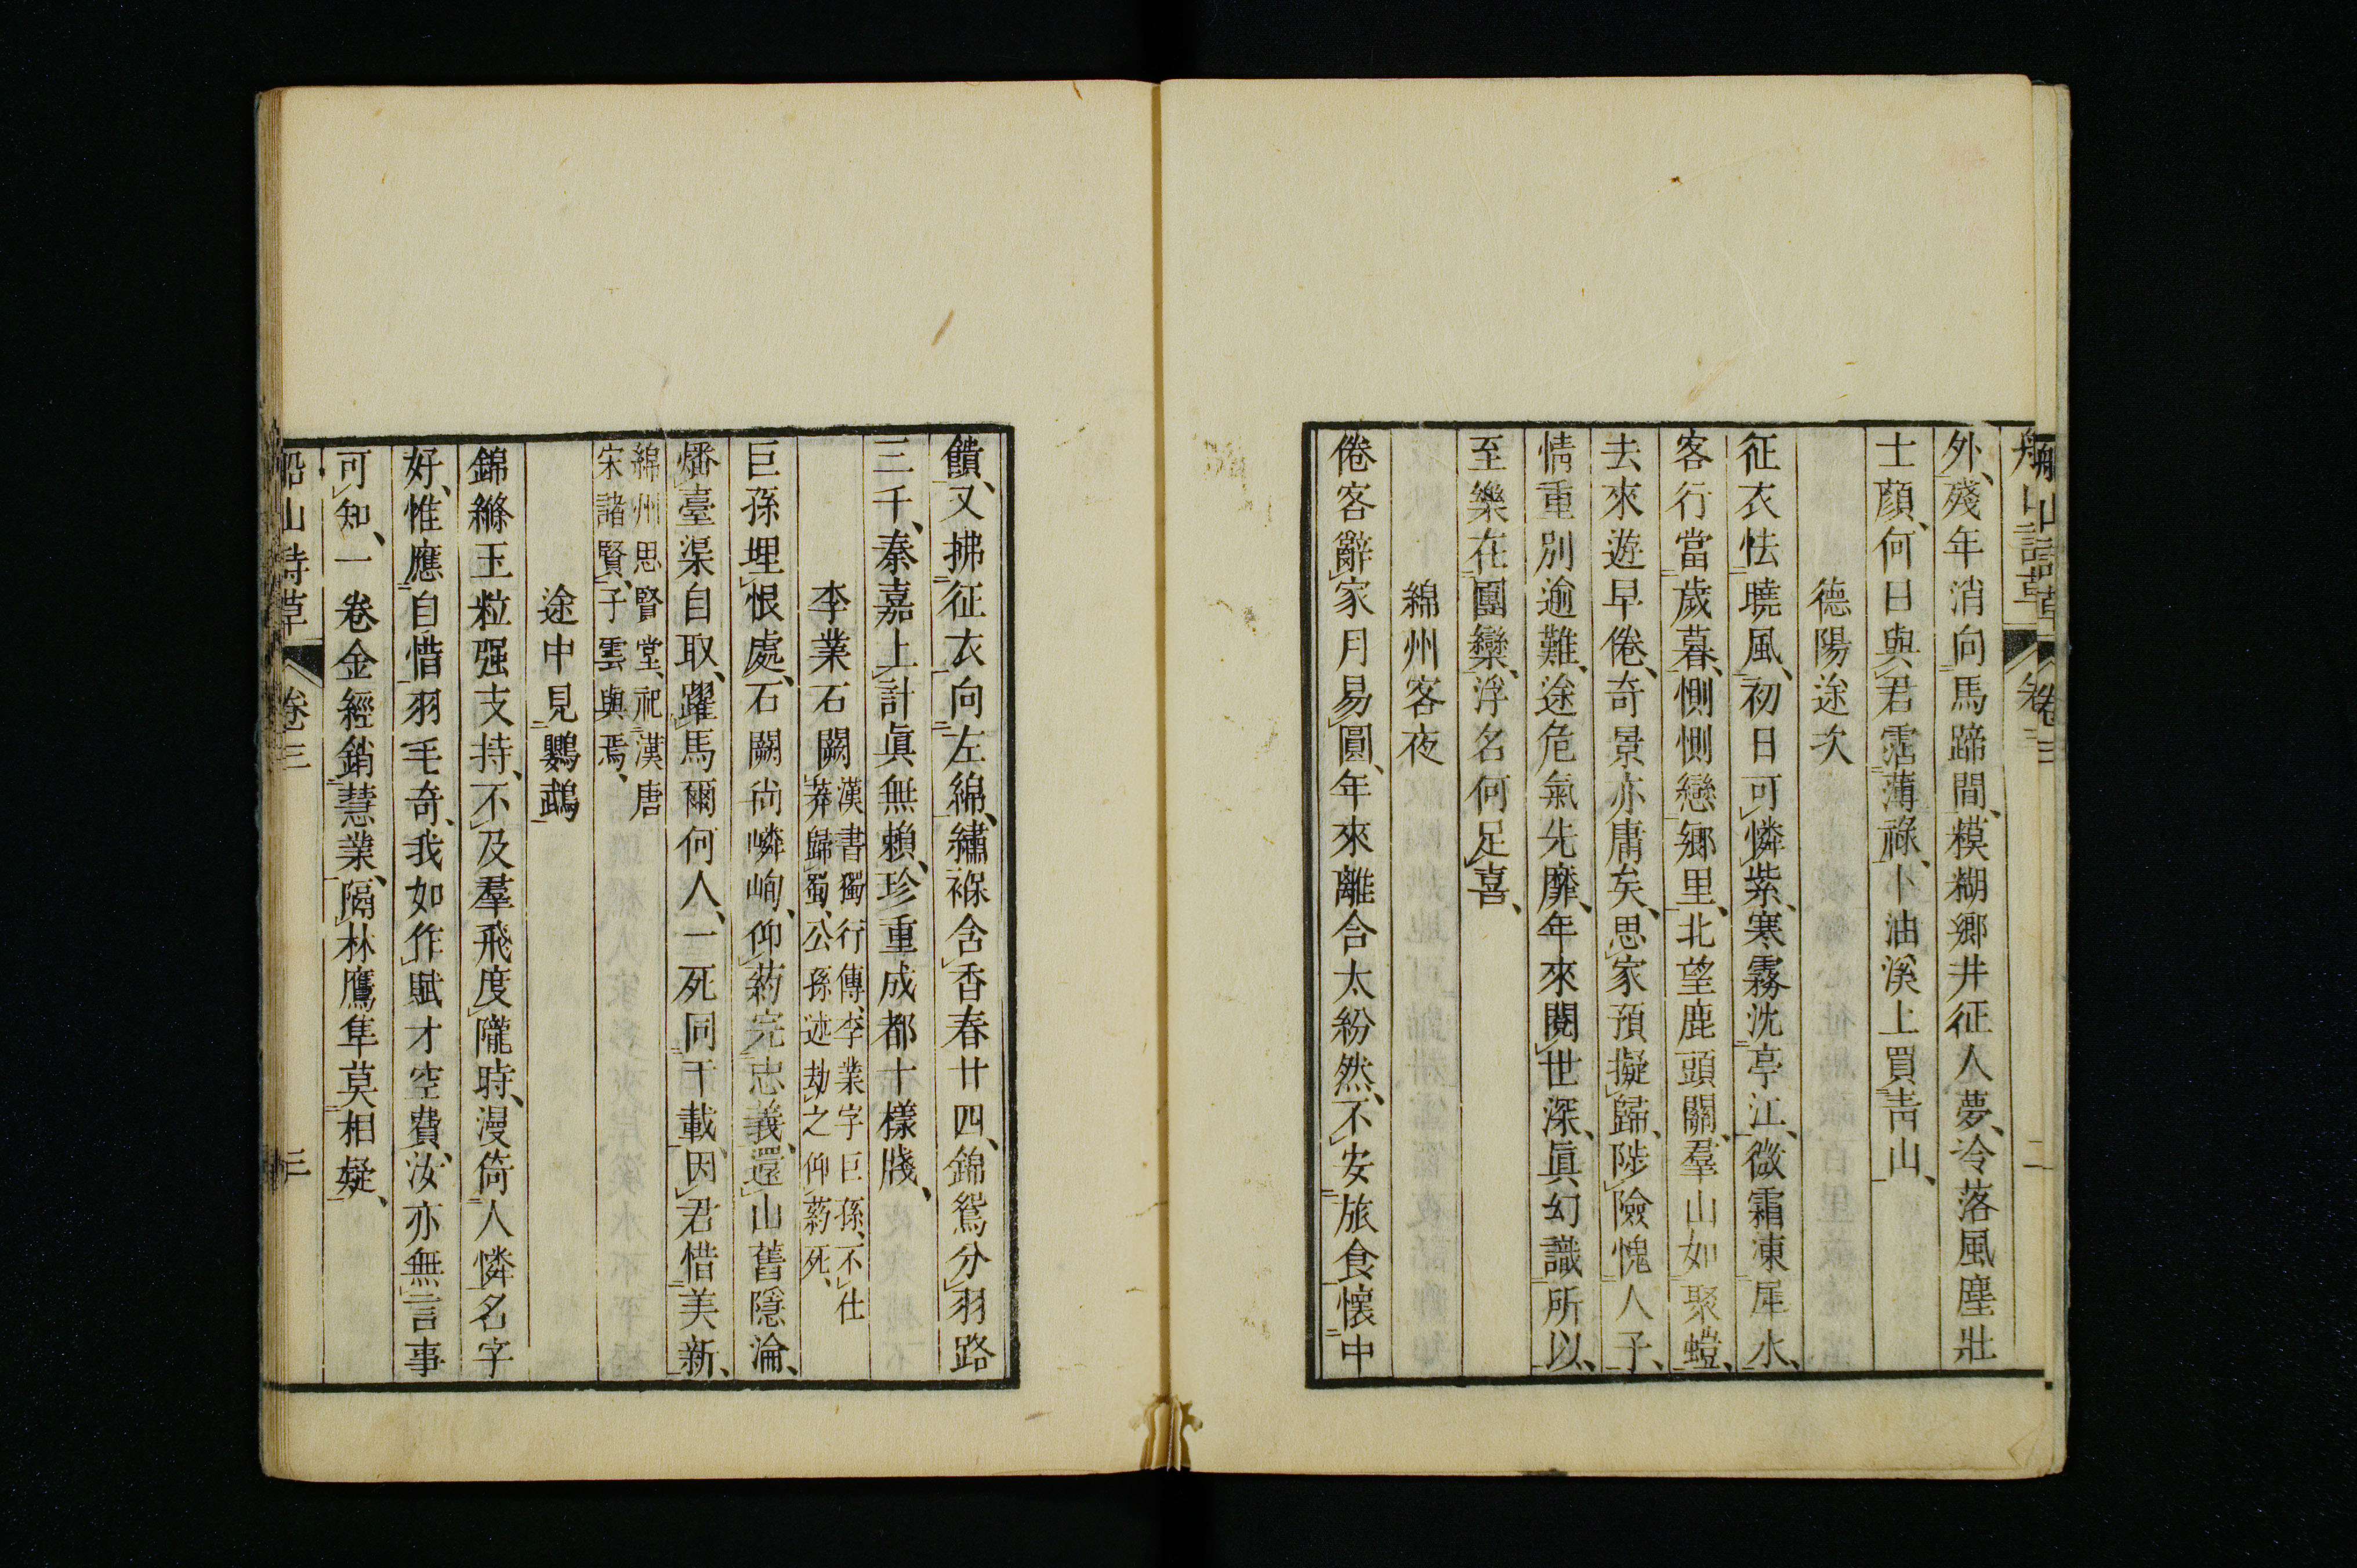 船山詩草 卷三 二
外、殘年消向馬蹄間、模糊鄉井征人夢、冷落風塵壯
士顏、何日與君霑薄祿、卜油溪上買靑山、
德陽途次
征衣怯曉風、初日可憐紫、寒霧沈亭江、微霜凍犀水、
客行當歲暮、惻惻戀鄉里、北望鹿頭關、羣山如聚螘、
去來遊早倦、奇景亦庸矣、思家預擬歸、陟險愧人子、
情重別逾難、途危氣先靡、年來閱世深、眞幻識所以、
至樂在團欒、浮名何足喜、
綿州客夜
倦客辭家月易圓、年來離合太紛然、不安旅食懷中
饋、又拂征衣向左綿、繡褓含香春廿四、錦鴛分羽路
三千、秦嘉上計眞無賴、珍重成都十樣牋、
李業石闕 漢書獨行傳、李業字巨孫、不仕
莽歸蜀、公孫述劫之仰葯死、
巨孫埋恨處、石闕尙嶙峋、仰葯完忠義、還山舊隱淪、
燔臺渠自取、躍馬爾何人、一死同千載、因君惜美新、
綿州思賢堂、祀漢唐
宋諸賢、子雲與焉、
途中見鸚鵡
錦縧玉粒强支持、不及羣飛度隴時、漫倚人憐名字
好、惟應自惜羽毛奇、我如作賦才空費、汝亦無言事
可知、一卷金經銷慧業、隔林鷹隼莫相疑、
船山詩草 卷三 三